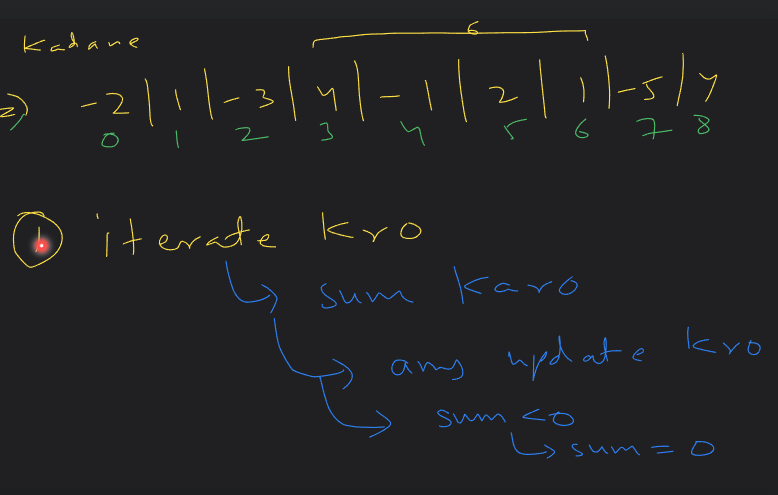 Kadane
6
-2 | 1 | -3 | 4 | -1 | 2 | 1 | -5 | 4
0 1 2 3 4 5 6 7 8
1 iterate kro
sum karo
ans update kro
sum < 0
sum = 0